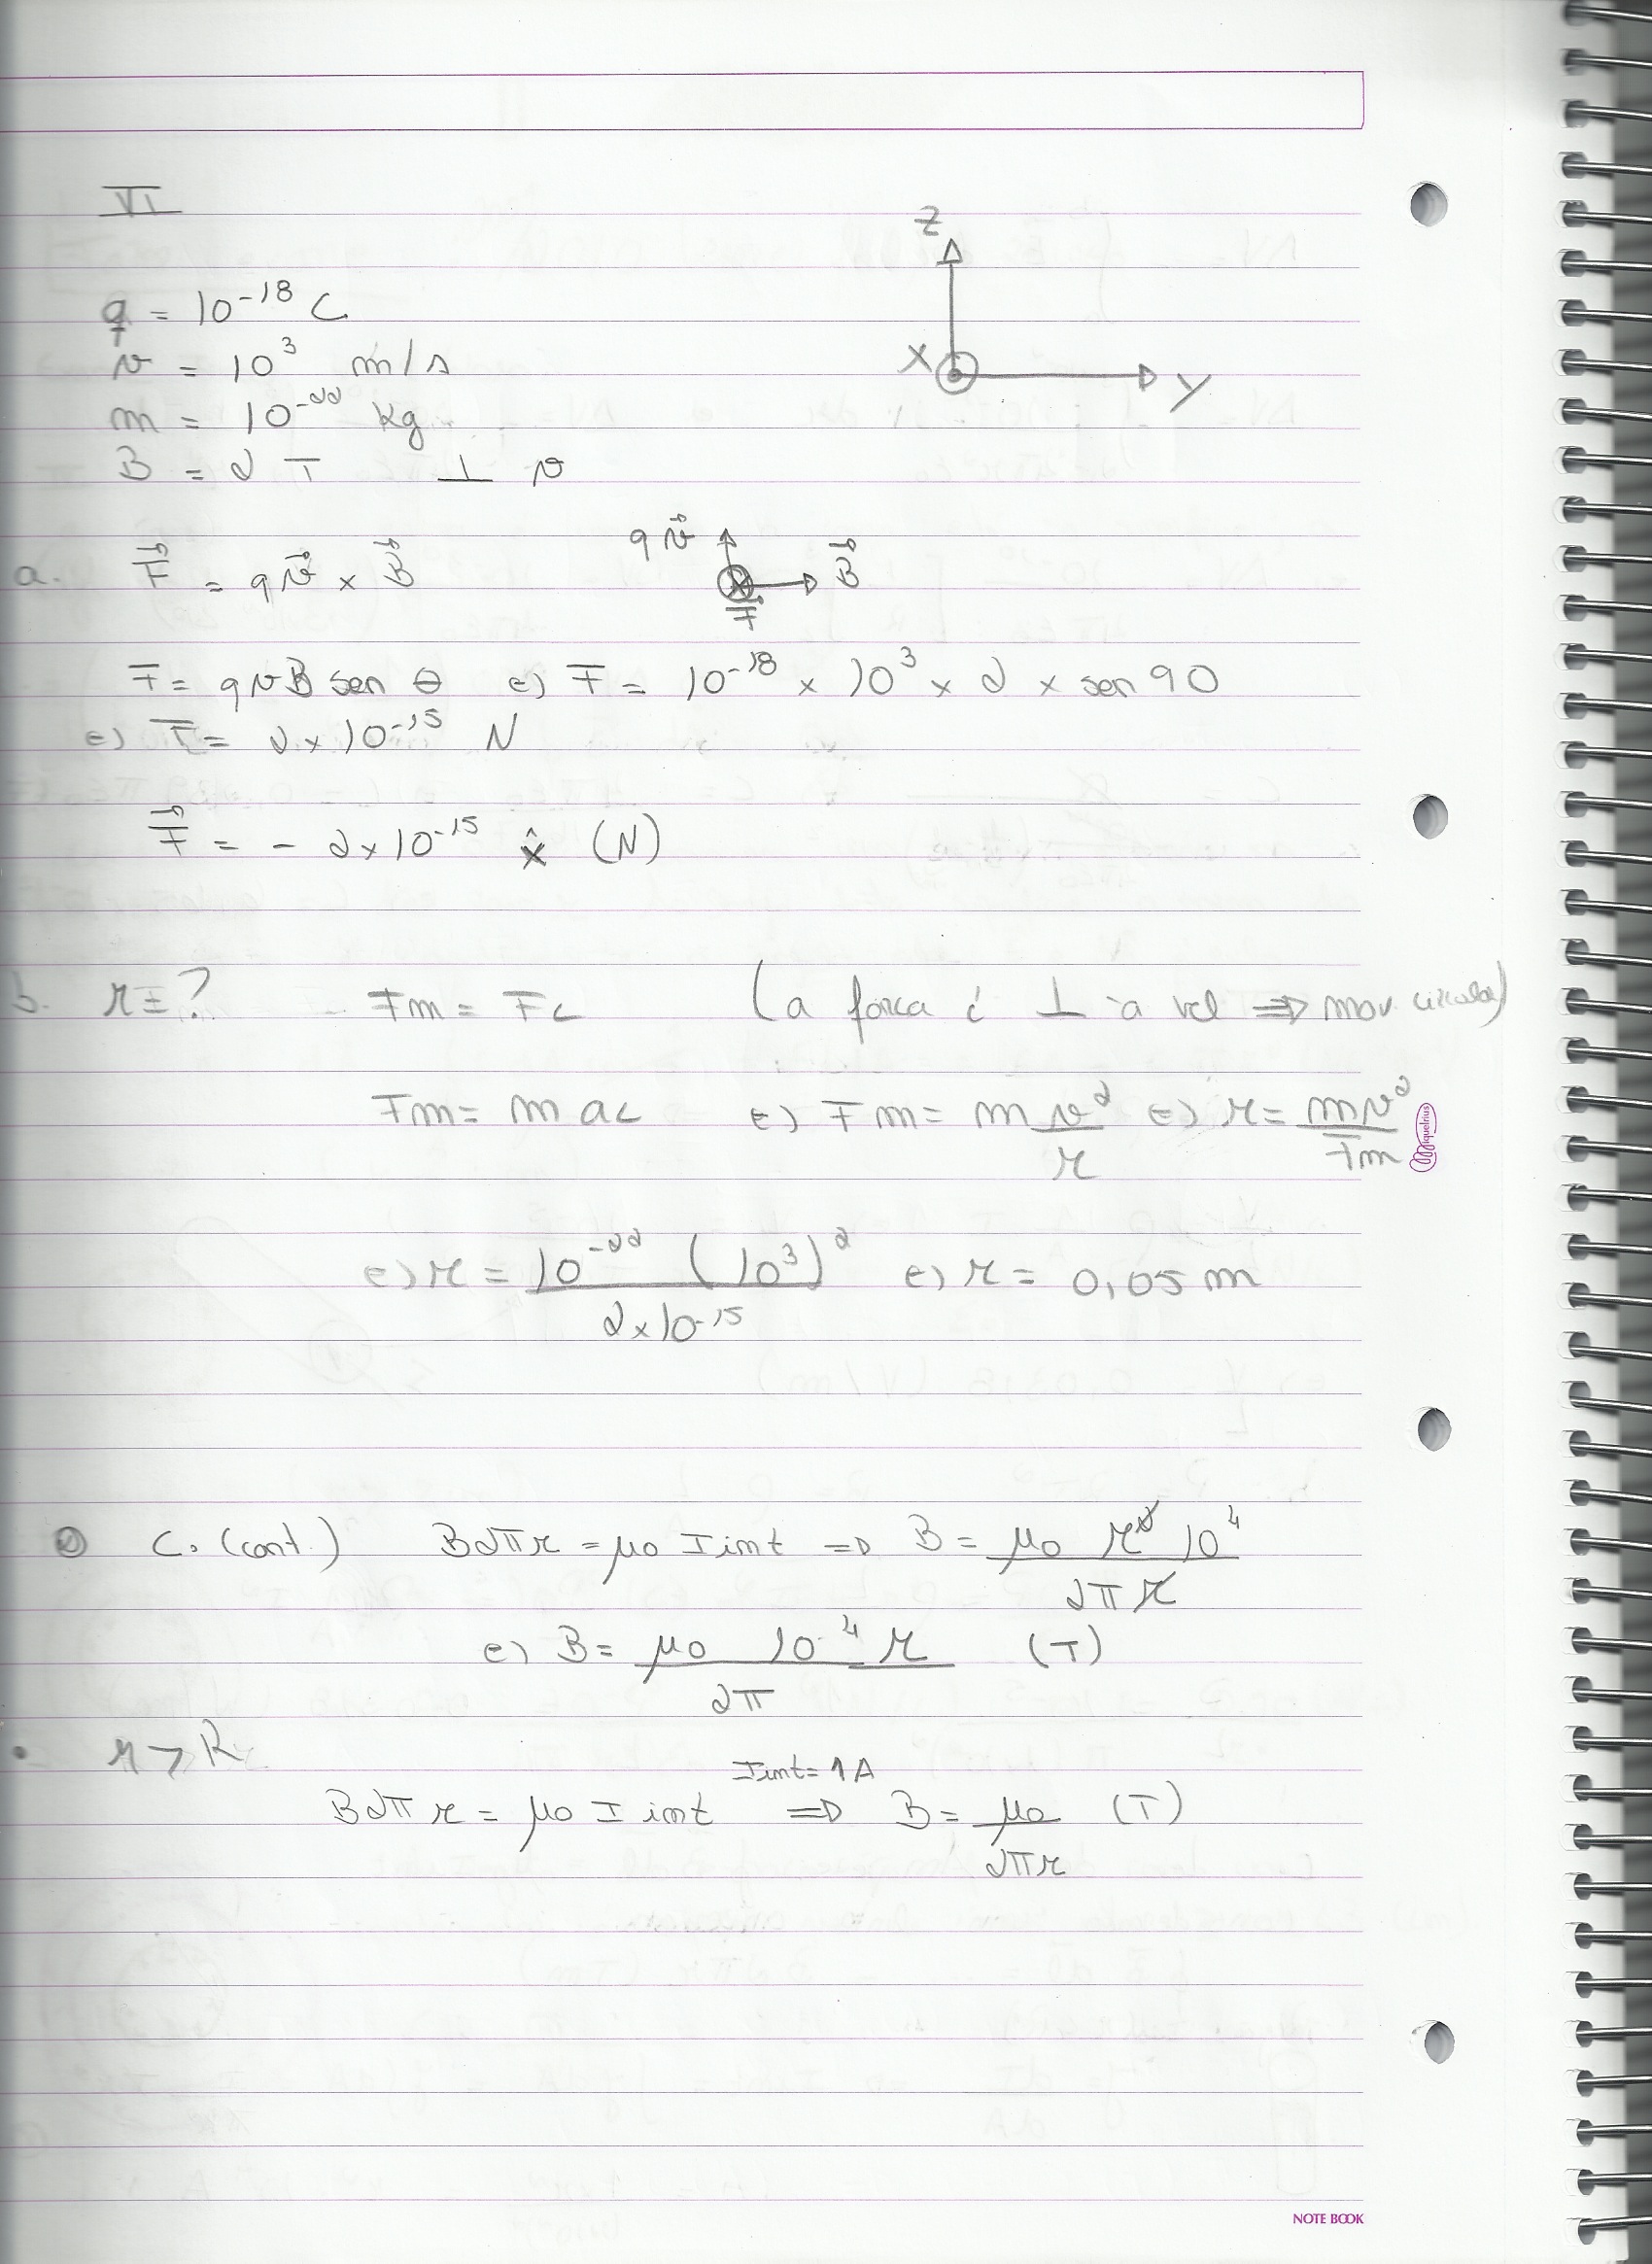 VI
Z
X
Y
q = 10⁻¹⁸ C
v = 10³ m/s
m = 10⁻²² kg
B = 2 T ⊥ v
a. F⃗ = q v⃗ × B⃗
q v⃗
B⃗
F⃗
F = q v B sen θ (=) F = 10⁻¹⁸ × 10³ × 2 × sen 90
(=) F = 2 × 10⁻¹⁵ N
F⃗ = - 2 × 10⁻¹⁵ x̂ (N)
b. r = ? Fm = Fc (a força é ⊥ à vel => mov. circular)
Fm = m ac (=) Fm = m v²/r (=) r = mv²/Fm
(=) r = 10⁻²² (10³)²/2×10⁻¹⁵ (=) r = 0,05 m
② c. (cont.) B2πr = μ0 Iint => B = μ0 r² 10⁴/2πr
(=) B = μ0 10⁴ r/2π (T)
• r > R
Iint = 1A
B2πr = μ0 Iint => B = μ0/2πr (T)
Miquelrius
NOTE BOOK